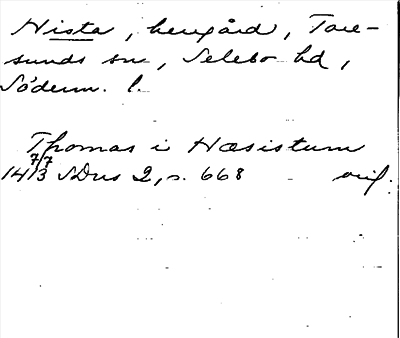 Hista, herrgård, Tore-
sunds sn, Selebo hd,
Söderm. l.
Thomas i Hæsistum
14 7/7 13 SDns 2, s. 668 orig.